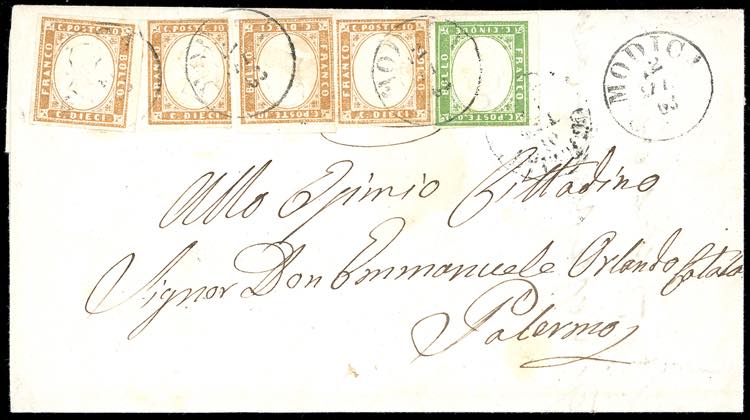 C. POSTE 10
FRANCO BOLLO
C. DIECI
C. POSTE 10
FRANCO
C. DIECI
C. POSTE 10
FRANCO BOLLO
C. DIECI
C. POSTE 10
FRANCO BOLLO
C. DIECI
C. POSTE 05
FRANCO BOLLO
C. CINQUE
MODICA
12
63
Allo Esimio Cittadino
Signor Don Emmanuele Orlando
Palermo